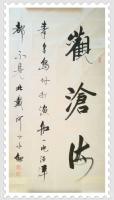 觀滄海
秦皇島外打漁船一片汪洋
都不見北戴河